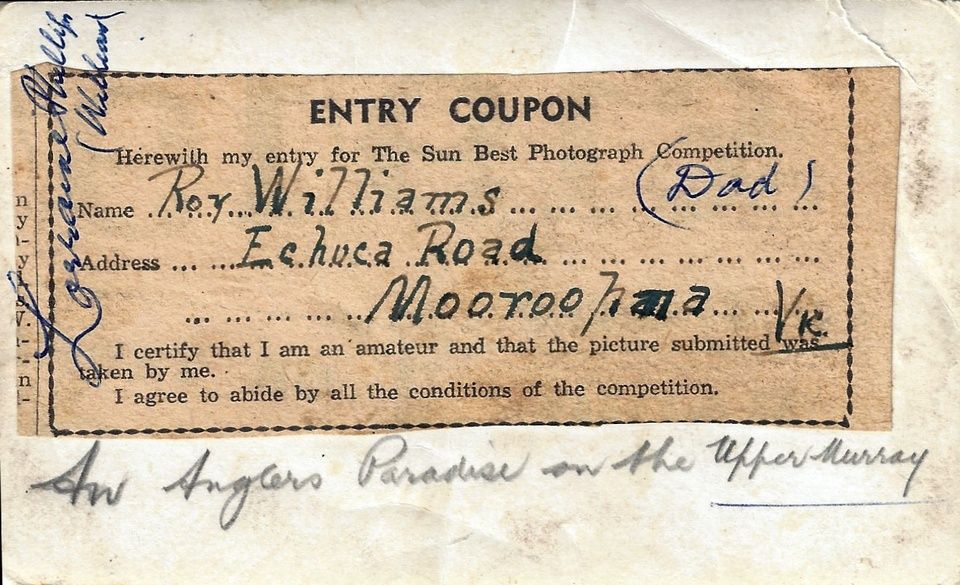 Lorraine Phillips
ENTRY COUPON
Herewith my entry for The Sun Best Photograph Competition.
Name Roy Williams (Dad)
Address Echuca Road
Mooroopna Vic.
I certify that I am an amateur and that the picture submitted was
taken by me.
I agree to abide by all the conditions of the competition.
An Anglers Paradise on the Upper Murray